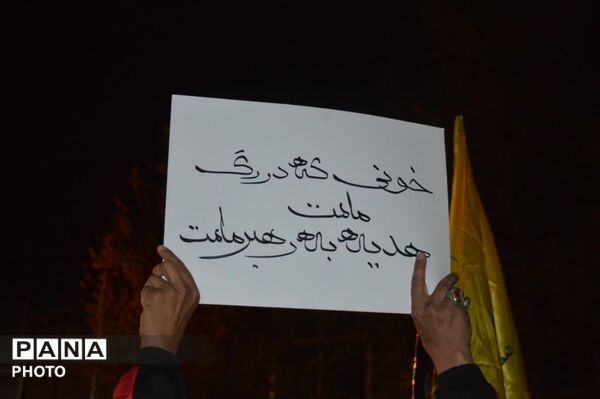 خونی که در رگ
ماست
هدیه به رهبر ماست
PANA
PHOTO